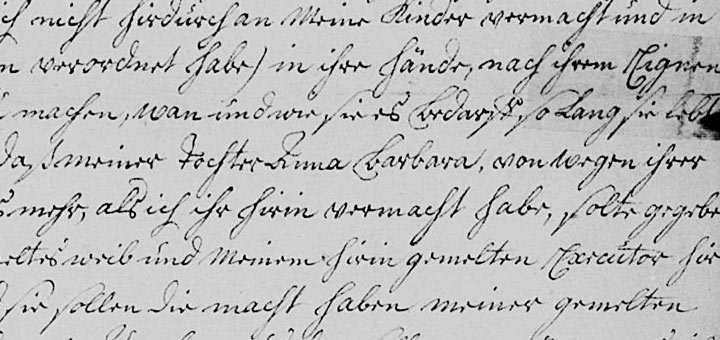 ich nicht hirdurch an Meine Kinder vermacht und in
n verordnet habe) in ihre hände, nach ihrem Eignen
machen, wan und wie sie es bedarf, so Lang sie lebt
daß meiner Tochter Anna Barbara, von wegen ihrer
s mehr, als ich ihr hirin vermacht habe, solte gegebe
eltes weib und Meinem hirin gemelten Executor hir
sie sollen die macht haben meiner gemelten